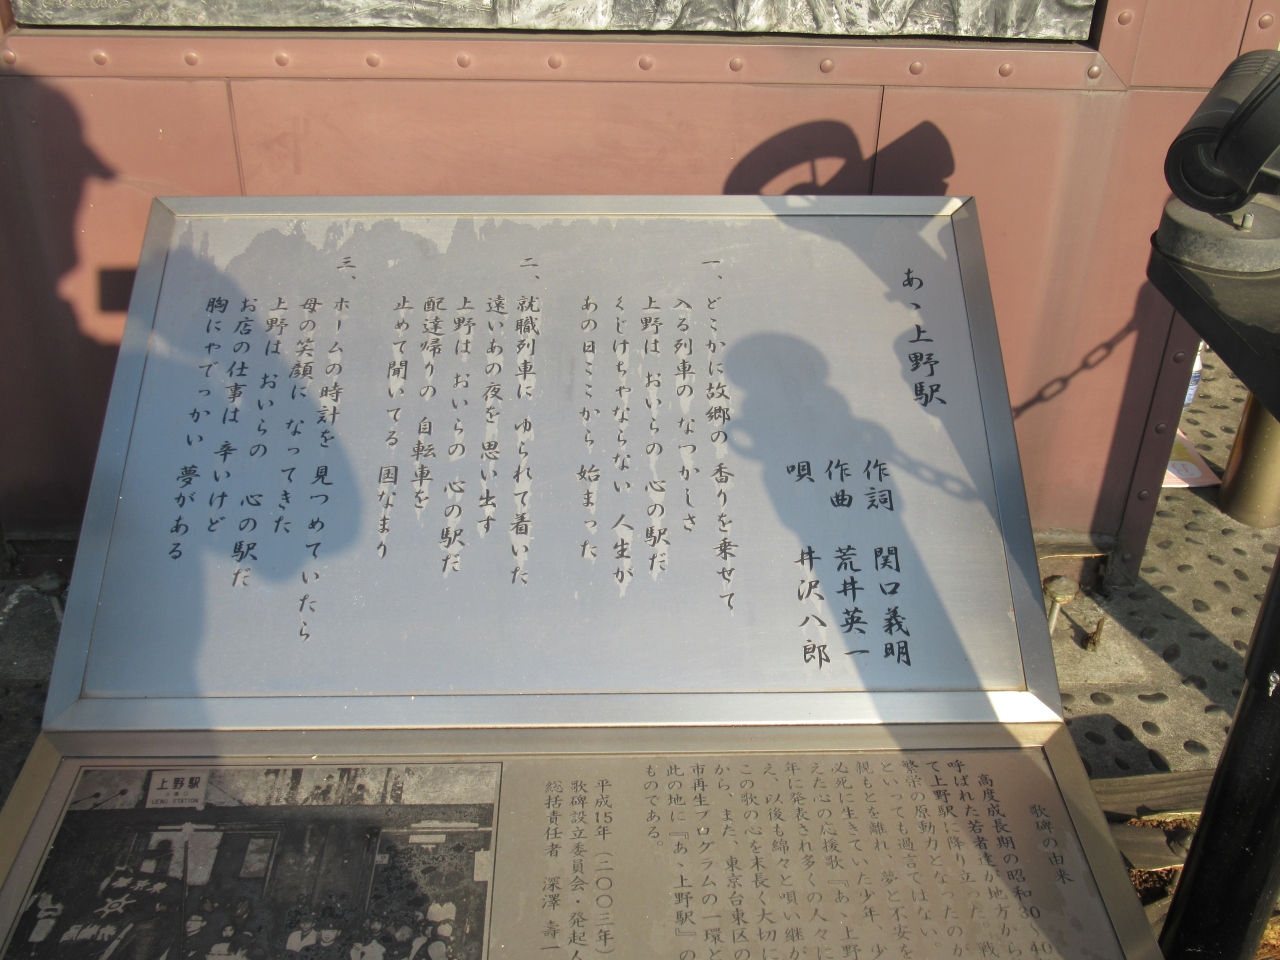 あゝ上野駅
作詞 関口義明
作曲 荒井英一
唄 井沢八郎
一、どこかに故郷の香りを乗せて
入る列車の なつかしさ
上野は おいらの 心の駅だ
くじけちゃならない 人生が
あの日ここから 始まった
二、就職列車に ゆられて着いた
遠いあの夜を 思い出す
上野は おいらの 心の駅だ
配達帰りの 自転車を
止めて聞いてる 国なまり
三、ホームの時計を 見つめていたら
母の笑顔に なってきた
上野は おいらの 心の駅だ
お店の仕事は 辛いけど
胸にゃでっかい 夢がある
歌碑の由来
高度成長期の昭和30〜40
呼ばれた若者達が地方から
て上野駅に降り立った。戦
繁栄の原動力となったのが
といっても過言ではない。
親もとを離れ、夢と不安を
必死に生きていた少年、少
えた心の応援歌『あゝ上野
年に発表され多くの人々に
え、以後も綿々と唄い継が
この歌の心を末長く大切に
から、また、東京台東区の
市再生プログラムの一環と
此の地に『あゝ上野駅』の
ものである。
平成15年(二〇〇三年)
歌碑設立委員会・発起人
総括責任者 深澤 壽一
上野駅
UENO STATION